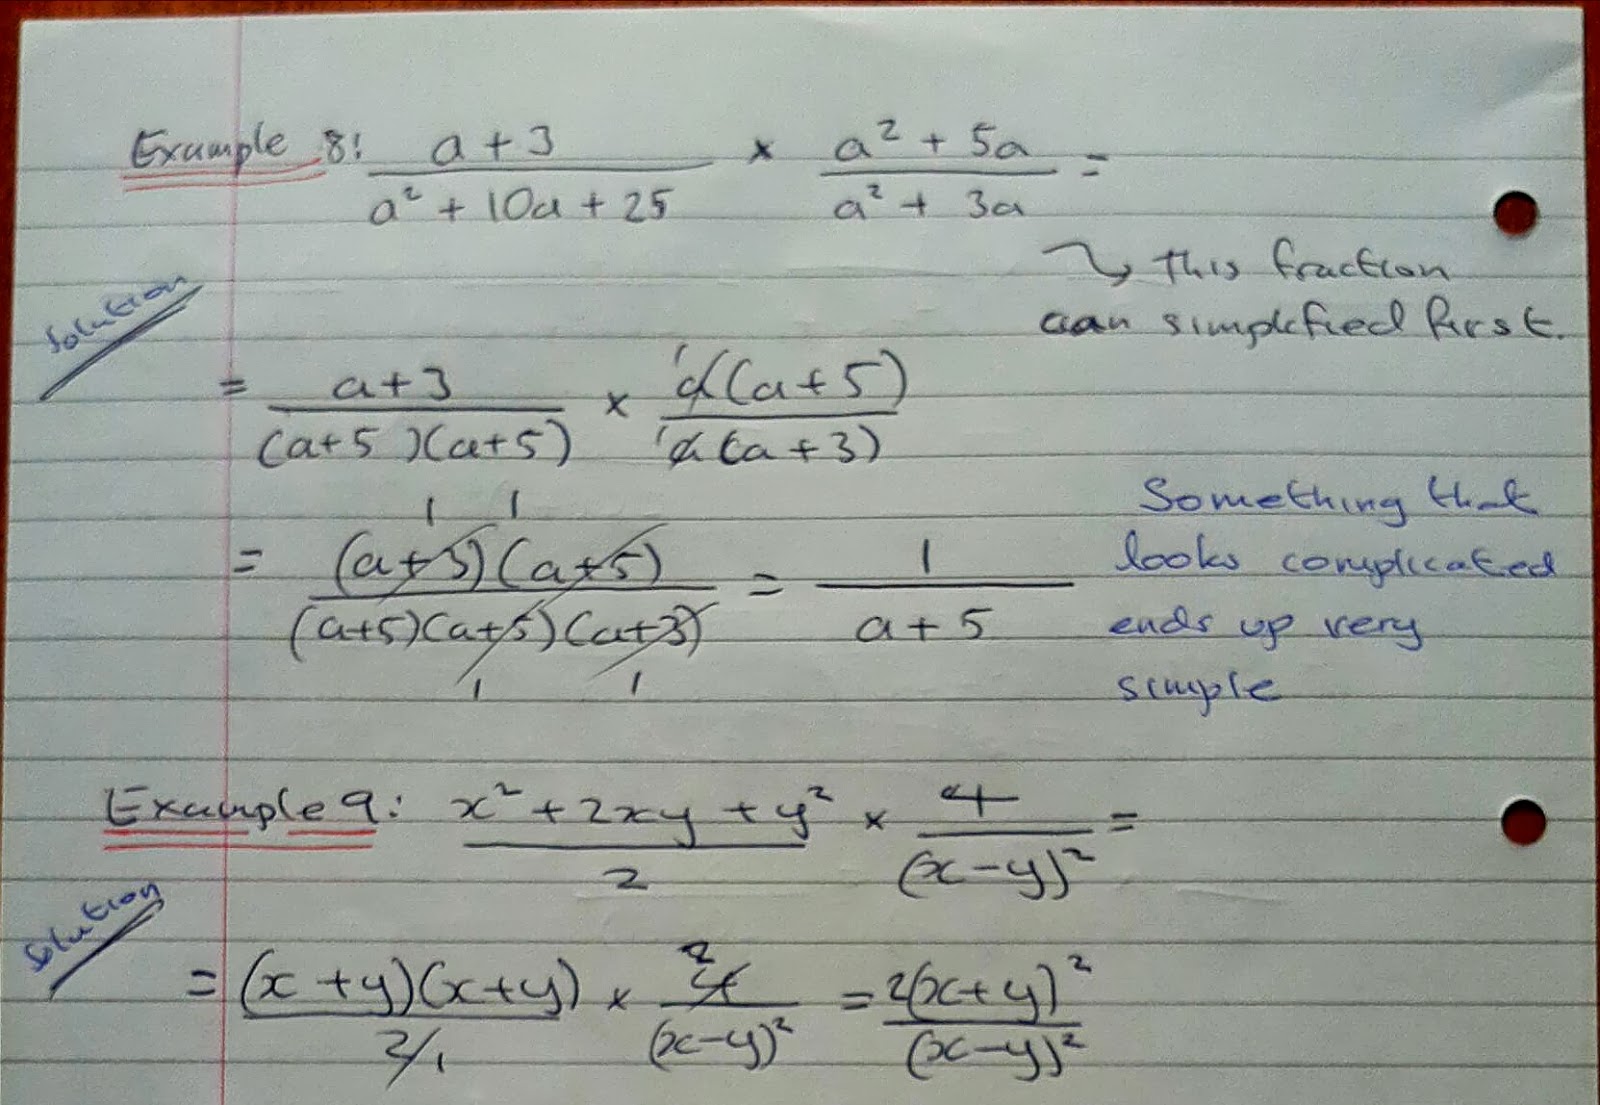 Example 8: (a + 3)/(a² + 10a + 25) × (a² + 5a)/(a² + 3a) =
↘ this fraction
can simplified first.
Solution
= (a+3)/((a+5)(a+5)) × ¹a(a+5)/¹a(a+3)
1 1
= ((a+3)(a+5))/((a+5)(a+5)(a+3)) = 1/(a+5)
1 1
Something that
looks complicated
ends up very
simple
Example 9: (x² + 2xy + y²)/2 × 4/(x-y)² =
Solution
= ((x+y)(x+y))/2 1 × 2 4/(x-y)² = 2(x+y)²/(x-y)²